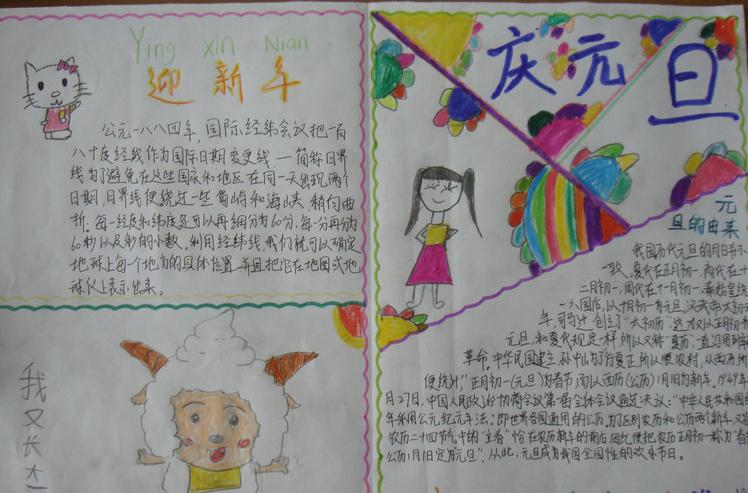 Ying xin Nian
迎新年
公元一八八四年,国际经纬会议把一百
八十度经线作为国际日期变更线,一简称日界
线为了避免在这些国家和地区在同一天出现两个
日期,日界线便绕过一些岛屿和海峡,稍向曲
折。每一经度和纬度还可以再细分为60分,每一分再分为
60秒以及秒的小数。利用经纬线,我们就可以确定
地球上每个地方的具体位置,并且把它在地图或地
球仪上表示出来。
我又长大
庆元旦
元
旦的由来
我国历代元旦的月日不
一致。夏代在正月初一,商代在十
二月初一,周代在十一月初一,秦始皇统
一六国后,以十月初一为元旦,汉武帝太初元
年,司马迁创立了“太初历”,这才又以正月初一
元旦,和夏代规定一样,所以又称“夏历”,一直沿用到辛
革命。中华民国建立,孙中山为了行夏正,所以顺农村,从西历所
便统计”,正月初一(元旦)为春节,而以西历(公历)1月1日为新年,1949年
月27日,中国人民政治协商会议第一届全体会议通过决议:“中华人民共和国纪
年采用公元纪元年法;即世界各国通用的公历,为了区别农历和公历两个新年,又
农历二十四节气中的“立春”恰在农历新年的前后,因此便把农历正月初一称为“春
公历1月1日定为元旦”。从此,元旦成为我国全国性的欢乐节日。